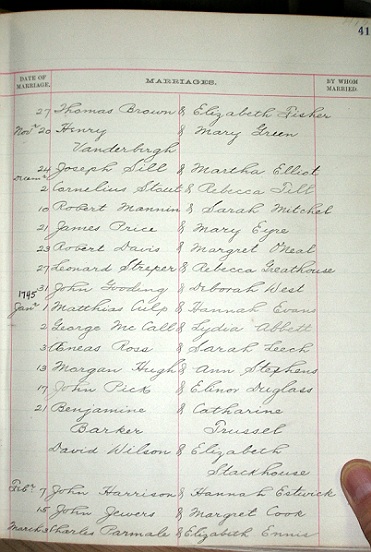 41
DATE OF MARRIAGE. MARRIAGES. BY WHOM MARRIED.
27 Thomas Brown & Elizabeth Fisher
Novr 20 Henry & Mary Green
Vanderburgh
24 Joseph Sill & Martha Elliot
Decemr 2 Cornelius Stout & Rebecca Till
10 Robert Mannin & Sarah Mitchel
21 James Price & Mary Eyre
23 Robert Davis & Margret ONeal
27 Leonard Streper & Rebecca Greathouse
31 John Gooding & Deborah West
1745
Janr 1 Matthias Culp & Hannah Evans
2 George Mc Call & Lydia Abbett
3 Æneas Ross & Sarah Leech
13 Morgan Hugh & Ann Stephens
17 John Pick & Elinor Duglass
21 Benjamine & Catharine
Barker Trussel
David Wilson & Elizabeth
Stackhouse
Febr 7 John Harrison & Hannah Estwick
15 John Jewers & Margret Cook
March 3 Charles Parmale & Elizabeth Ennis